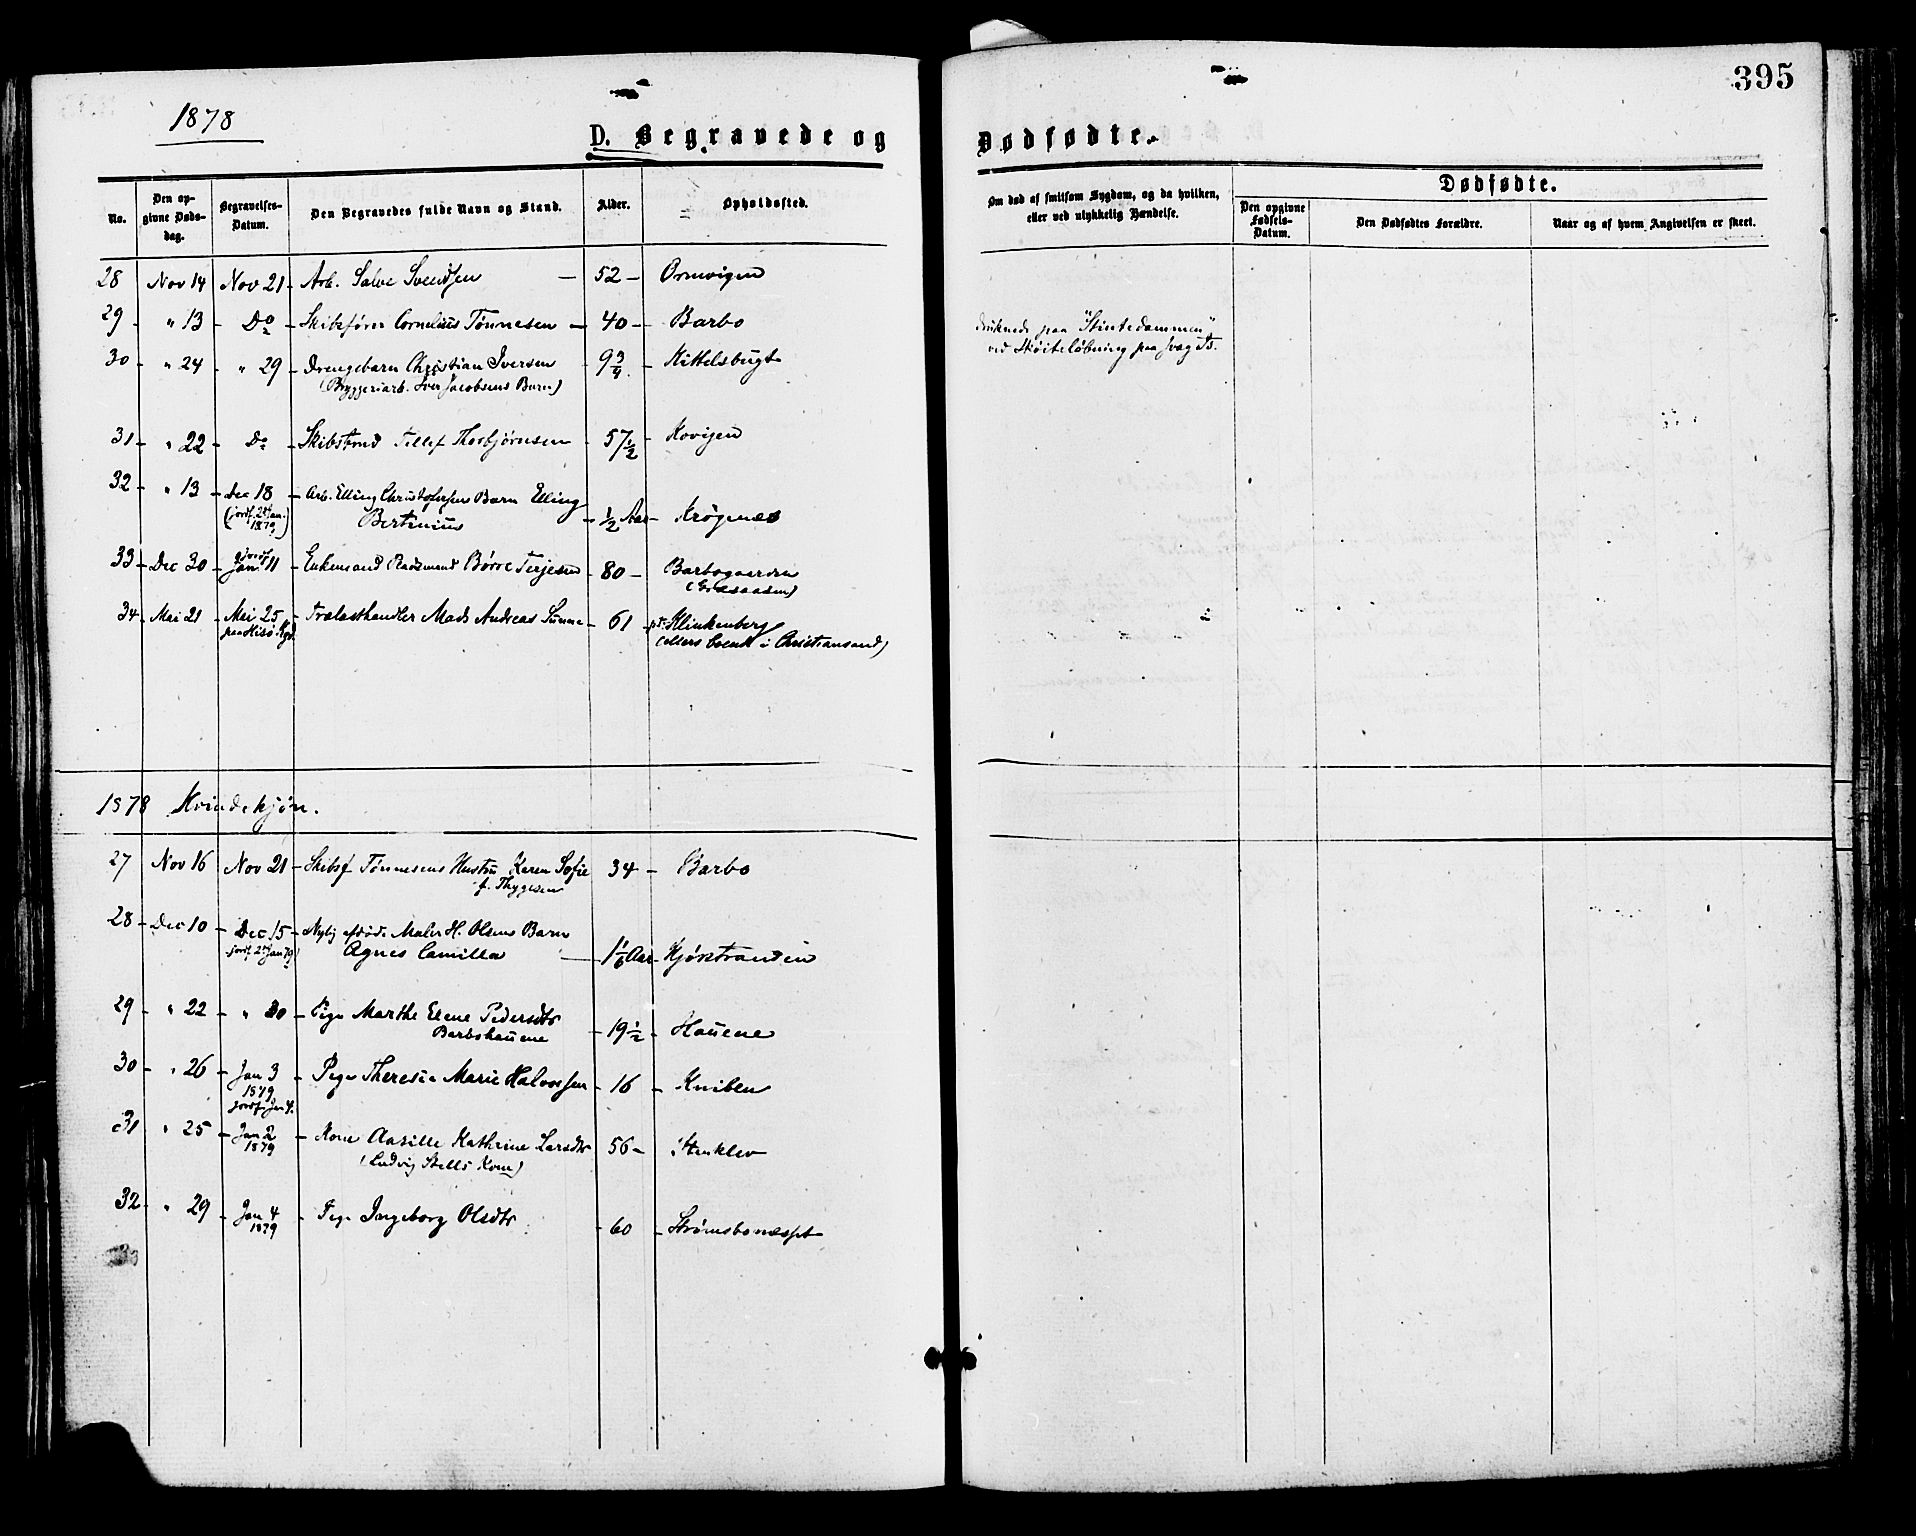 395
1878
D. Begravede og Dødfødte.
No.
Den opgivne Dødsdag.
Begravelses-Datum.
Den Begravedes fulde Navn og Stand.
Alder.
Opholdssted.
Om død af smitsom Sygdom, og da hvilken, eller ved ulykkelig Hændelse.
Dødfødte.
Den opgivne Fødsels-Datum.
Den Dødfødtes Forældre.
Naar og af hvem Angivelsen er skeet.
28 Nov 14 Nov 21 - Arb. Salve Svendsen - 52 - Ormvigen
29 - " 13 - Do - Skibsfører Cornelius Tønnesen - 40 - Barbo
druknede paa "Stintedammen"
ved Skøiteløbning paa svag Is.
30 - " 24 - " 29 - Drengebarn Christian Iversen - 9 3/4 - Kittelsbugt
(Bryggeriarb. Iver Jacobsens Barn)
31 - " 22 - Do - Skibstmd Tellef Thorbjørnsen - 57 1/2 - Kovigen
32 - " 13 - Dec 18 - Arb. Elling Christophersens Barn Elling
(jordf. 2den Jan. 1879) Bertinius - 1/2 Aar - Krøgenæs
33 - Dec 30 - jordf Jan. 11 - Enkemand Børre Terjesen - 80 - Barbogaarden
34 - Mai 21 - Mai 25 - Trælasthandler Mads Andreas Sunne - 61 - pt. Klinkenberg
paa Hisø Kgd (ellers boende i Christiansand)
1878 Kvindekjøn.
27 Nov 16 Nov 21 - Skibsf Tønnesens Hustru Karen Sofie 34 - Barbo
f. Thygesen
28 - Dec 10 - Dec 15 - Nylig afdøde Maler H. Olsens Barn
jordf 2den Jan 79 Agnes Camilla - 1 1/6 Aar - Kjørstranden
29 - " 22 - " 30 - Pige Marthe Elene Pedersdtr
Barbohauene - 19 1/2 - Hauene
30 - " 26 - Jan 3 - Pige Theresia Marie Halvorsen - 16 - Kniben
1879
jordf. Jan 4.
31 " 25 - Jan 2 - Kone Aasille Kathrine Larsdtr 56 - Stenklev
1879 (Ludvig Kone)
32 - " 29 - Jan 4 - Pige Ingeborg Olsdtr - 60 - Strømsbonæsset
1879